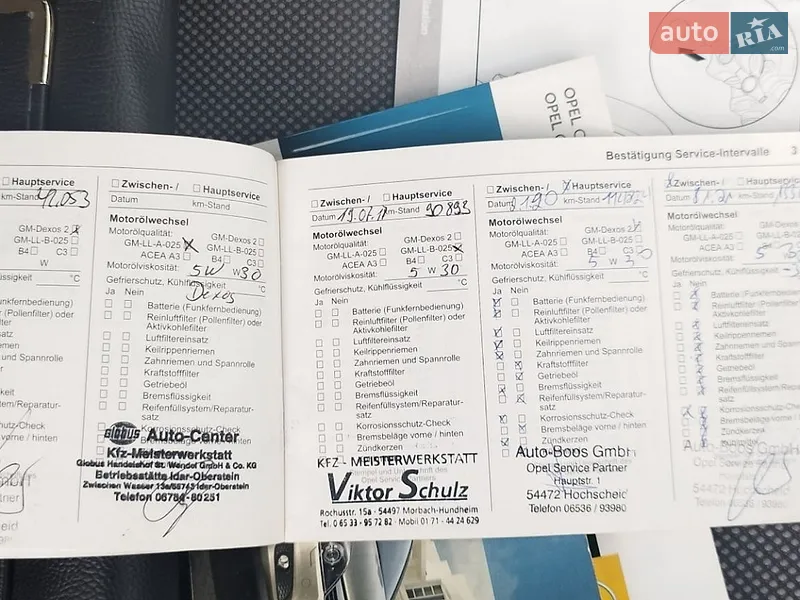 auto RIA.com
OPEL
OPEL
Bestätigung Service-Intervalle 3
Hauptservice
km-Stand 42.053
GM-Dexos 2
GM-LL-B-025
B4 C3
W
°C
Zwischen- / Hauptservice
Datum km-Stand
Motorölwechsel
Motorölqualität: GM-Dexos 2
GM-LL-A-025 GM-LL-B-025
ACEA A3 B4 C3
Motorölviskosität: 5W W30
Gefrierschutz, Kühlflüssigkeit °C
Dexos
Ja Nein
Batterie (Funkfernbedienung)
Reinluftfilter (Pollenfilter) oder
Aktivkohlefilter
Luftfiltereinsatz
Keilrippenriemen
Zahnriemen und Spannrolle
Kraftstofffilter
Getriebeöl
Bremsflüssigkeit
Reifenfüllsystem/Reparatur-
satz
Korrosionsschutz-Check
Bremsbeläge vorne / hinten
GLOBUS Auto-Center
Kfz-Meisterwerkstatt
Globus Handelshof St. Wendel GmbH & Co. KG
Betriebsstätte Idar-Oberstein
Zwischen Wasser 13a/55743 Idar-Oberstein
Telefon 06784-80251
Zwischen- / Hauptservice
Datum 19.07.17 km-Stand 90893
Motorölwechsel
Motorölqualität: GM-Dexos 2
GM-LL-A-025 GM-LL-B-025
ACEA A3 B4 C3
Motorölviskosität: 5 W 30
Gefrierschutz, Kühlflüssigkeit °C
Ja Nein
Batterie (Funkfernbedienung)
Reinluftfilter (Pollenfilter) oder
Aktivkohlefilter
Luftfiltereinsatz
Keilrippenriemen
Zahnriemen und Spannrolle
Kraftstofffilter
Getriebeöl
Bremsflüssigkeit
Reifenfüllsystem/Reparatur-
satz
Korrosionsschutz-Check
Bremsbeläge vorne / hinten
Zündkerzen
KFZ - MEISTERWERKSTATT
Viktor Schulz
Rochusstr. 15a · 54497 Morbach-Hundheim
Tel. 0 65 33 - 95 72 82 · Mobil 01 71 - 44 24 629
Zwischen- / Hauptservice
Datum km-Stand
Motorölwechsel
Motorölqualität: GM-Dexos 2
GM-LL-A-025 GM-LL-B-025
ACEA A3 B4 C3
Motorölviskosität: 5 W 30
Gefrierschutz, Kühlflüssigkeit °C
Ja Nein
Batterie (Funkfernbedienung)
Reinluftfilter (Pollenfilter) oder
Aktivkohlefilter
Luftfiltereinsatz
Keilrippenriemen
Zahnriemen und Spannrolle
Kraftstofffilter
Getriebeöl
Bremsflüssigkeit
Reifenfüllsystem/Reparatur-
satz
Korrosionsschutz-Check
Bremsbeläge vorne / hinten
Zündkerzen
Auto-Boos GmbH
Opel Service Partner
Hauptstr. 1
54472 Hochscheid
Telefon 06536 / 93980
Zwischen- / Hauptservice
km-Stand
Motorölwechsel
Motorölqualität: GM-Dexos 2
GM-LL-A-025 GM-LL-B-025
ACEA A3 B4 C3
Motorölviskosität:
Gefrierschutz, Kühlflüssigkeit
Ja Nein
Batterie (Funkfernbedienung)
Reinluftfilter (Pollenfilter)
Aktivkohlefilter
Luftfiltereinsatz
Keilrippenriemen
Zahnriemen und Spannrolle
Kraftstofffilter
Getriebeöl
Bremsflüssigkeit
Reifenfüllsystem/Reparatur-
satz
Korrosionsschutz-Check
Bremsbeläge vorne / hinten
Zündkerzen
Opel Service Partner
54472 Hochscheid
Telefon 06536 / 93980